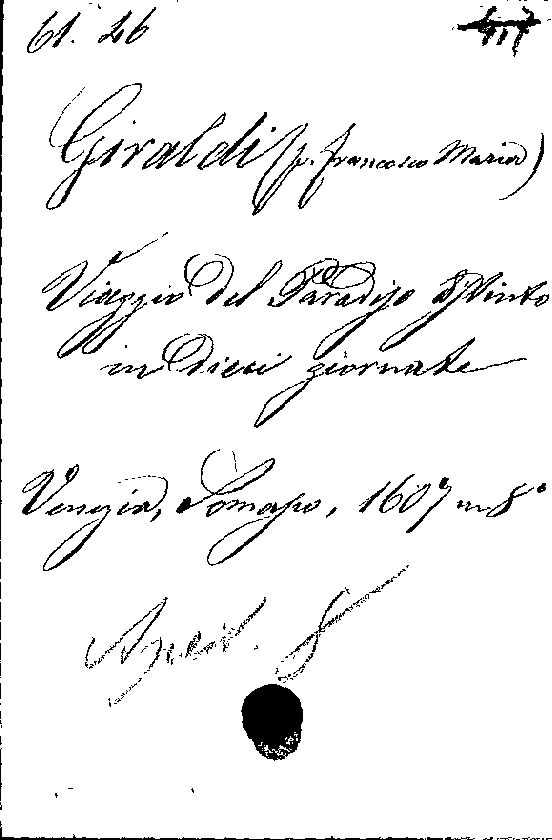 61. 26
Giraldi (p. Francesco Maria)
Viaggio del Paradiso
in dieci giornate
Venezia, Somasco, 1607 in 8°